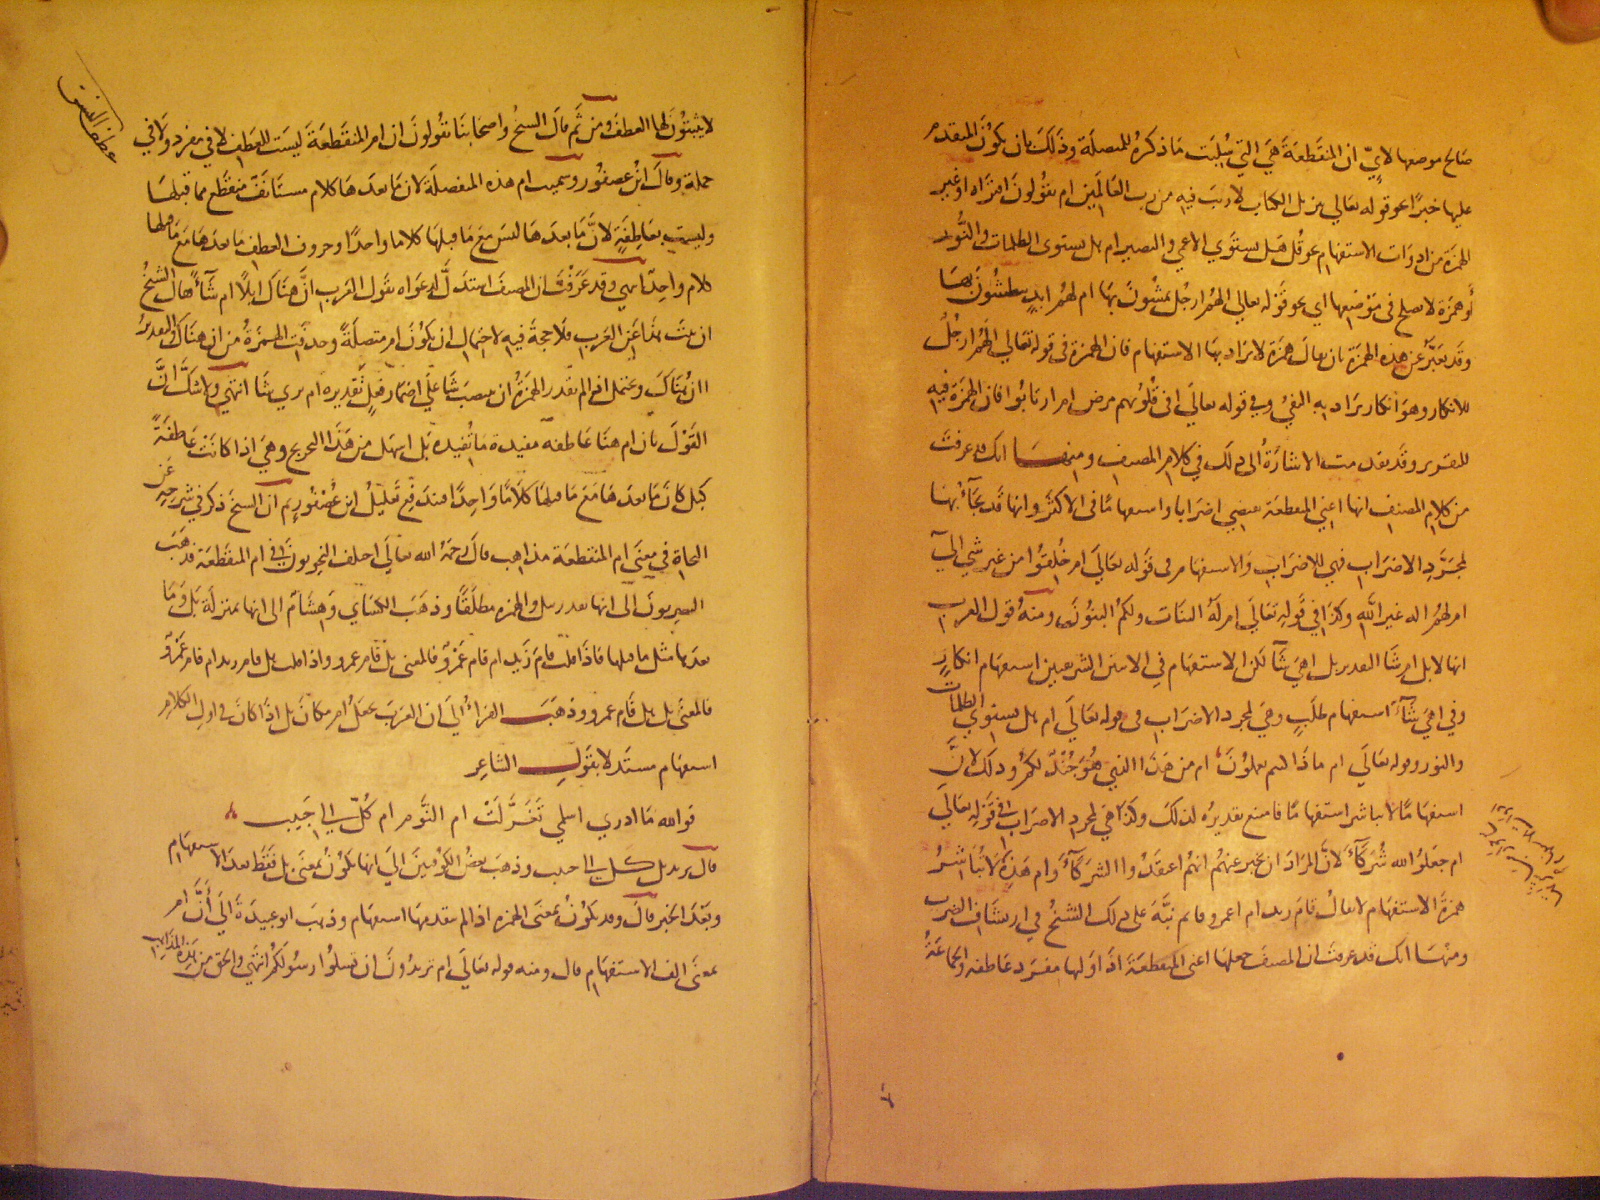 صالح موضعها لاي ان المنقطعة هي التي سلبت ما ذكره للمتصلة وذلك بان يكون المتقدم
عليها خبرا نحو قوله تعالي تنزيل الكتاب لا ريب فيه من رب العالمين ام يقولون افتراه او غير
الهمزة من ادوات الاستفهام نحو قل هل يستوي الاعمي والبصير ام هل يستوي الظلمات والنور
أو همزة لا يصلح في موضعها اي نحو قوله تعالي الهم ارجل يمشون بها ام لهم ايد يبطشون بها
وقد يعبر عن هذه الهمزة بان يقال همزة لا يراد بها الاستفهام فان الهمزة في قوله تعالي الهم ارجل
للانكار وهو انكار يراد به النفي وفي قوله تعالي افي قلوبهم مرض ام ارتابوا فان الهمزة فيه
للتقرير وقد تقدمت الاشارة الي ذلك في كلام المصنف ومنها انك قد عرفت
من كلام المصنف انها اعني المنقطعة تقتضي اضرابا واستفهاما في الاكثر وانها قد تجآء بها
لمجرد الاضراب فهي للاضراب والاستفهام في قوله تعالي ام خلقوا من غير شي
ام لهم اله غير الله وكذا في قوله تعالي ام له البنات ولكم البنون ومنه قول العرب
انها لابل ام شآ التقدير بل اهي شآ لكن الاستفهام في الايتين الشريفتين استفهام انكار
وفي اهي شآء استفهام طلب وهي لمجرد الاضراب في قوله تعالي ام هل يستوي الظلمات
والنور وقوله تعالي ام ماذا كنتم تعملون ام من هذا الذي هو جند لكم وذلك لان
استفهاما لا يباشر استفهاما فامتنع تقديره لذلك وكذا هي لمجرد الاضراب في قوله تعالي
ام جعلوا لله شركآء لان المراد ان يخبر عنهم انهم اعتقدوا الشركآء وام هذه لا تباشر
همزة الاستفهام لا يقال قام زيد ام اعمرو قائم نبه علي ذلك الشيخ في ارتشاف الضرب
ومنها انك قد عرفت ان المصنف جعلها اعني المنقطعة اذا اولها مفرد عاطفة والجماعة
عطف النسق
لا يثبتون لها العطف ومن ثم قال الشيخ واصحابنا يقولون ان ام المنقطعة ليست للعطف لا في مفرد ولا في
جملة وقال ابن عصفور وسميت ام هذه المنفصلة لان ما بعدها كلام مستانف منقطع مما قبلها
وليست بعاطفة لان ما بعدها ليس مع ما قبلها كلاما واحدا وحروف العطف ما بعدها مع ما قبلها
كلام واحد انتهي وقد عرفت ان المصنف استدل لدعواه بقول العرب ان هناك ابلا ام شآء قال الشيخ
ان ثبت هذا عن العرب فلا حجة فيه لاحتمال ان يكون ام متصلة وحذفت الهمزة من ان هناك والتقدير
اان هناك ويحتمل اذا لم تقدر الهمزة ان ينصب شا علي اضمار فعل تقديره ام يري شا انتهي ولا شك ان
القول بان ام هنا عاطفة مفيدة ما تفيده بل اسهل من هذا التخريج وهي اذا كانت عاطفة
كبل كان ما بعدها مع ما قبلها كلاما واحدا فيندفع تعليل ابن عصفور ثم ان الشيخ ذكر في شرحه عن
النحاة في معني ام المنقطعة مذاهب قال رحمه الله تعالي اختلف النحويون في ام المنقطعة فذهب
البصريون الي انها تقدر ببل والهمزة مطلقا وذهب الكسائي وهشام الي انها بمنزلة بل وما
بعدها مثل ما قبلها فاذا قلت قام زيد ام قام عمرو فالمعني بل قام عمرو واذا قلت هل قام زيد ام قام عمرو
فالمعني بل هل قام عمرو وذهب الفراء الي ان العرب تجعل ام مكان بل اذا كان في اول الكلام
استفهام مستدلا بقول الشاعر
فوالله ما ادري اسلمي تغولت ام النوم ام كل الي حبيب
قال يريد بل كل الي حبيب وذهب بعض الكوفيين الي انها تكون بمعني بل فقط بعد الاستفهام
وبعد الخبر قال وقد تكون بمعني الهمزة اذا لم يتقدمها استفهام وذهب ابو عبيدة الي أن ام
بمعني الف الاستفهام قال ومنه قوله تعالي ام تريدون ان تسلوا رسولكم انتهي والحق من هذه المذاهب